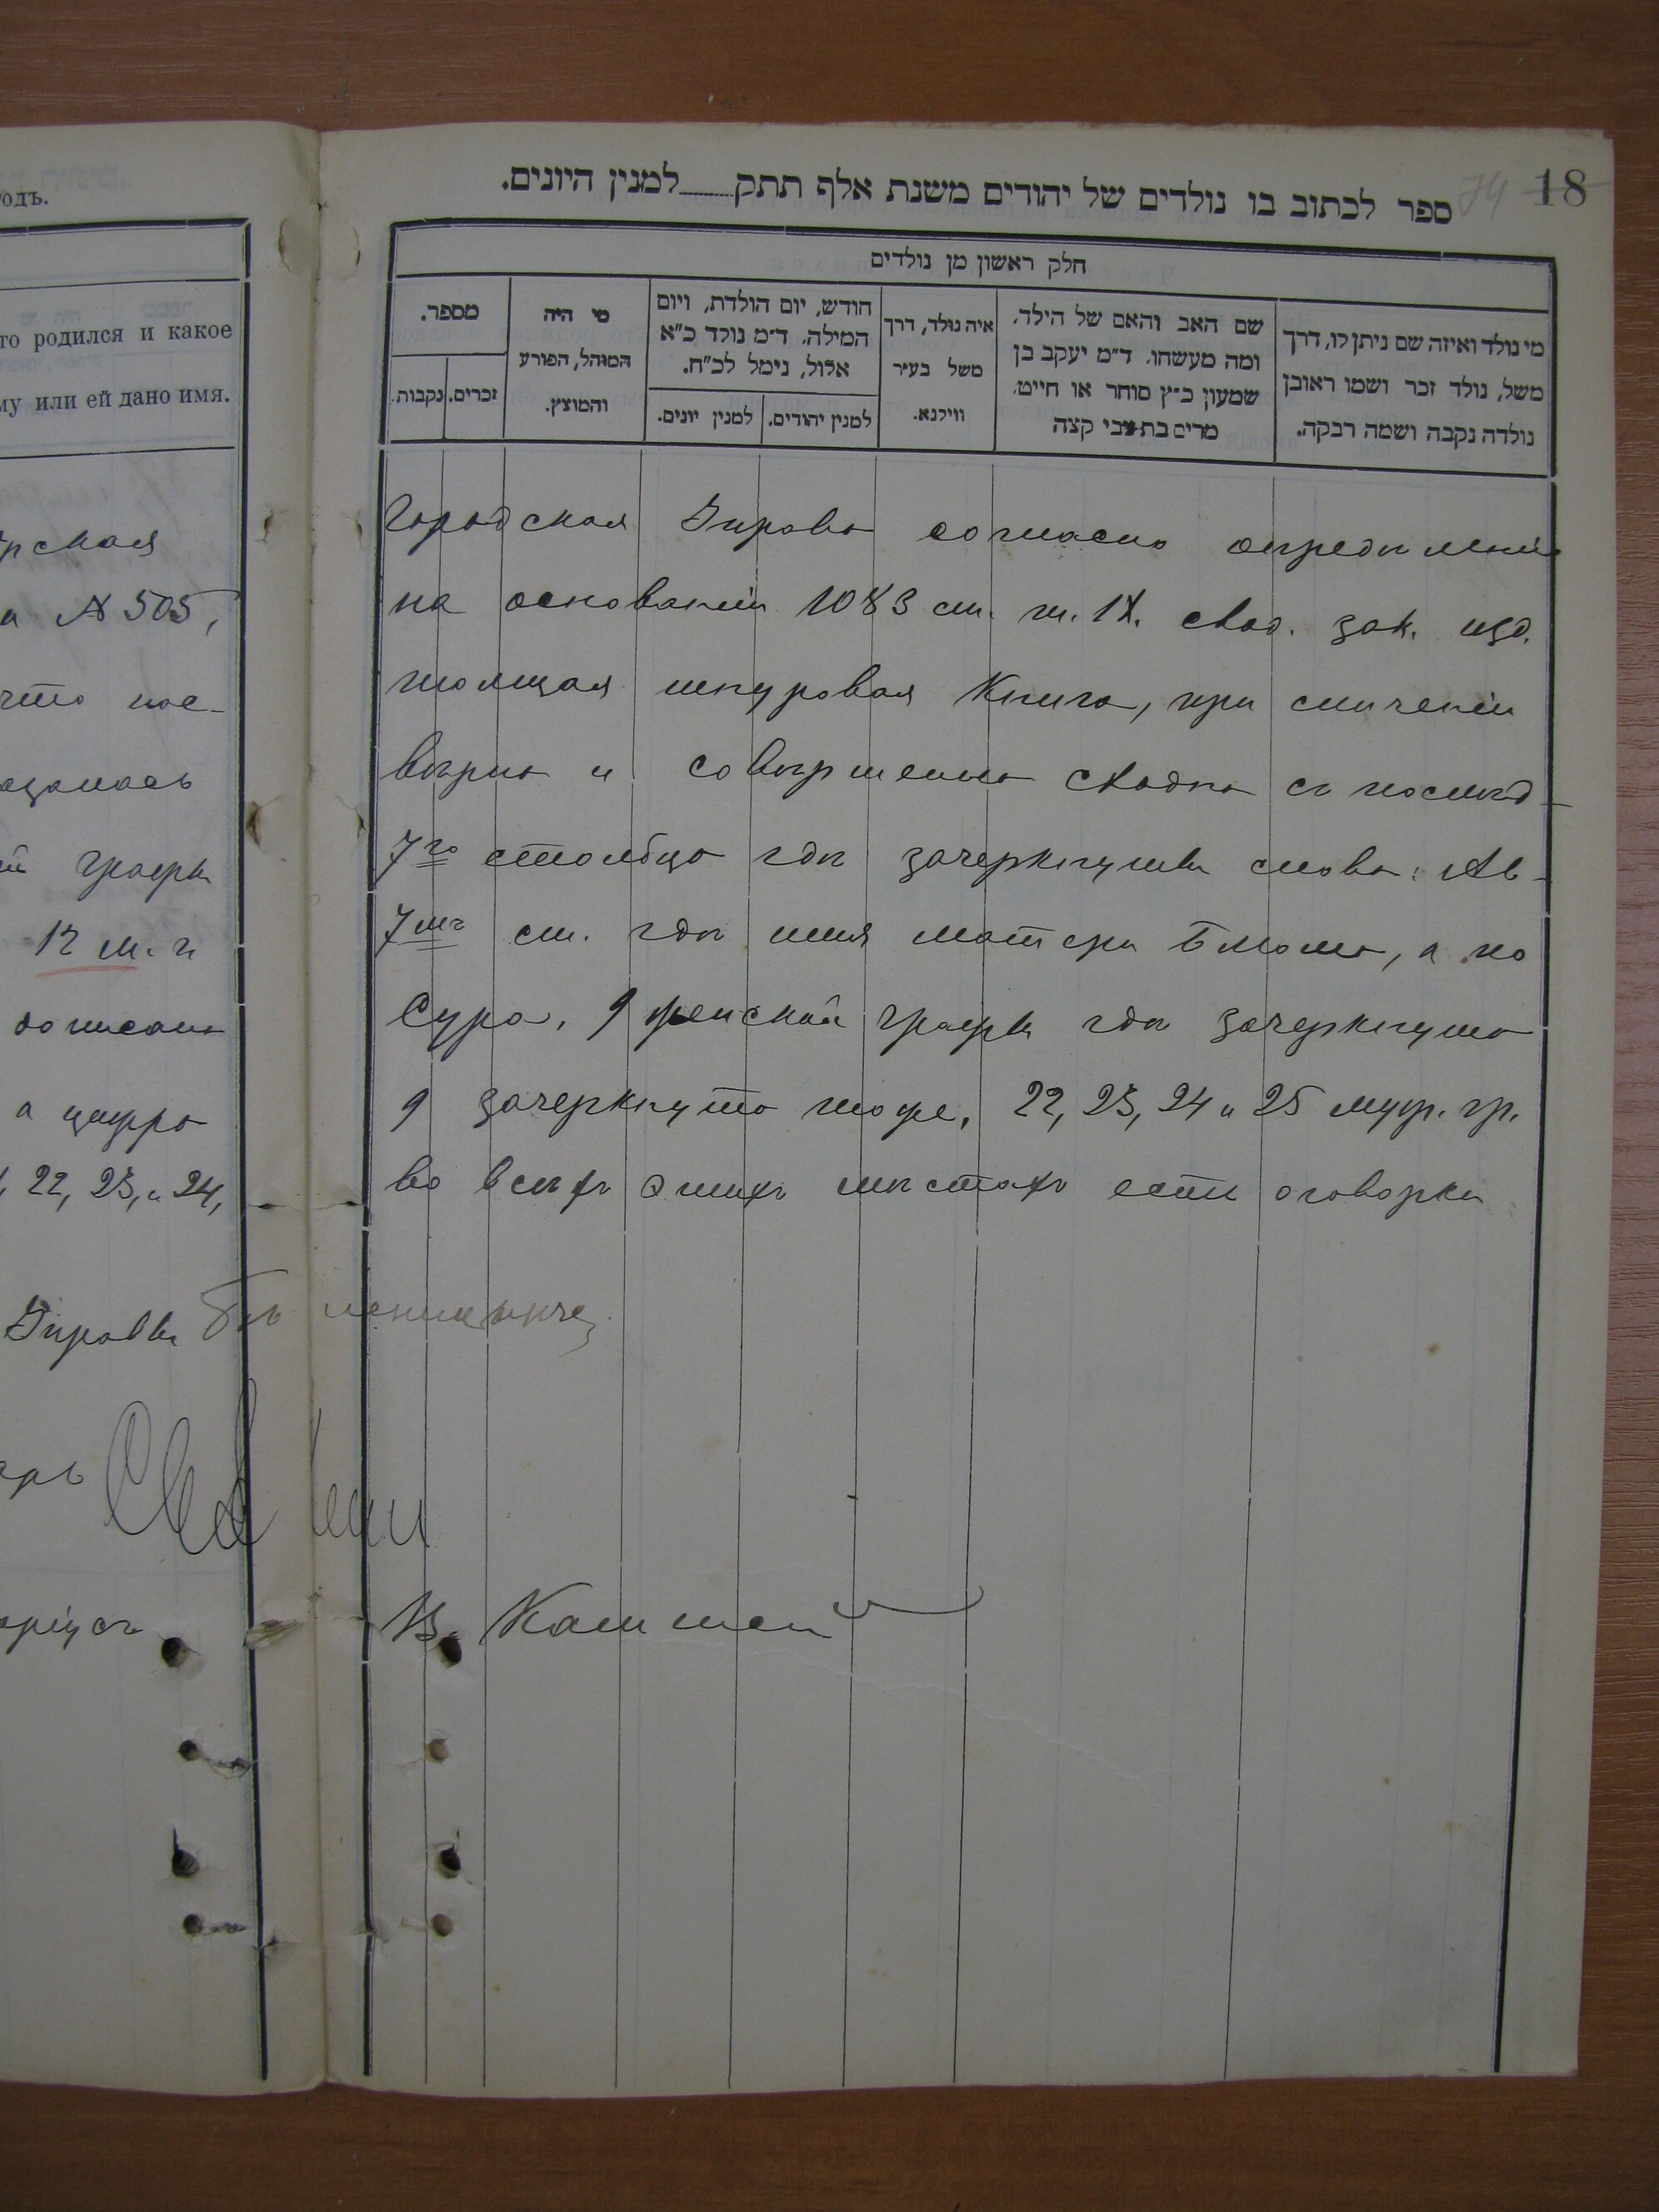 одъ.
то родился и какое
му или ей дано имя.
рская
а № 505,
что нас-
ащалась
й графы
12 м. г
дописано
а цифра
22, 23, и 24,
Управы
арь
ріусъ
18
74
ספר לכתוב בו נולדים של יהודים משנת אלף תתק___למנין היונים.
חלק ראשון מן נולדים
מי נולד ואיזה שם ניתן לו, דרך
משל, נולד זכר ושמו ראובן
נולדה נקבה ושמה רבקה.
שם האב והאם של הילד,
ומה מעשהו. ד"מ יעקב בן
שמעון כ"ץ סוחר או חייט,
מרים בת צבי קצה
איה נולד, דרך
משל בעיר
ווילנא.
חודש, יום הולדת, ויום
המילה. ד"מ נולד כ"א
אלול, נימל לכ"ח.
למנין יהודים.
למנין יונים.
מי היה
המוהל, הפורע
והמוצץ.
מספר.
זכרים.
נקבות.
Городская Управа согласно опредѣленія
на основаніи 1083 ст. т. IX. свод. зак. изд.
тоящая шнуровая Книга, при сличеніи
вѣрна и совершенно сходна съ послѣд-
7го столбца гдѣ зачеркнуты слова: Ав-
7мъ ст. гдѣ имя матери Блюма, а по
Сура, 9 женской графы гдѣ зачеркнута
9 зачеркнуто тоже, 22, 23, 24 и 25 муж. гр.
во всѣхъ этихъ мѣстахъ есть оговорки
В.